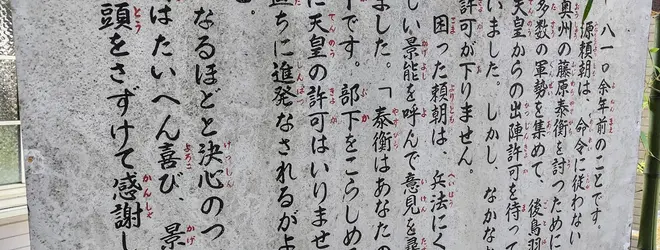 八一〇余年前のことです。
源頼朝は、命令に従わない
奥州の藤原泰衡を討つために
多数の軍勢を集めて、後鳥羽
天皇からの出陣許可を待って
いました。しかし、なかなか
許可が下りません。
困った頼朝は、兵法にく
しい景能を呼んで意見を尋
ました。「泰衡はあなたの
下です。部下をこらしめ
に天皇の許可はいりませ
直ちに進発なされるがよ
なるほどと決心のつ
はたいへん喜び、景
頭をさずけて感謝し